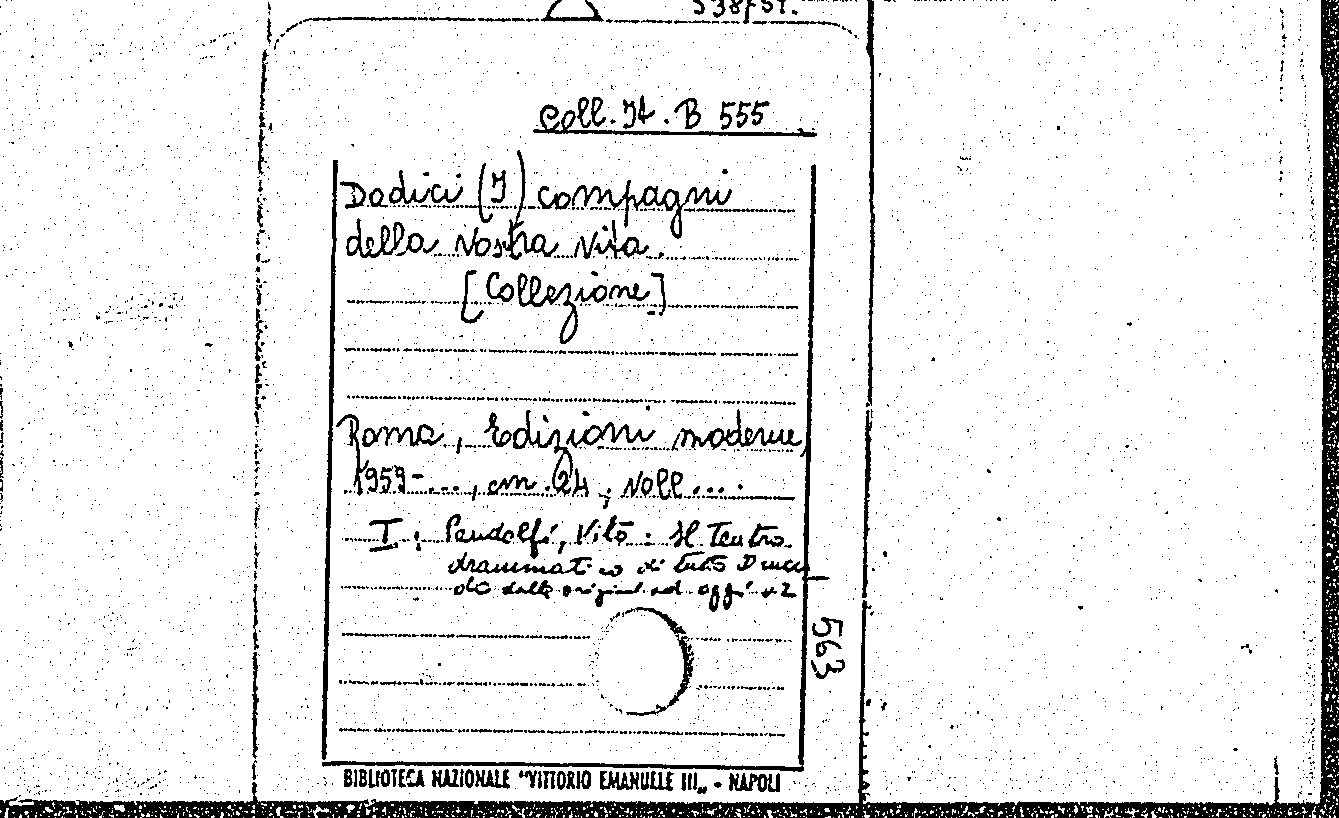 Coll. It. B 555
Dodici (I) compagni
della nostra vita.
[Collezione]
Roma, Edizioni moderne,
1959-..., cm. 24, voll....
I: Pandolfi, Vito: Il Teatro
drammatico di tutto
dalle origini ad oggi v. 2
563
BIBLIOTECA NAZIONALE "VITTORIO EMANUELE III„ - NAPOLI